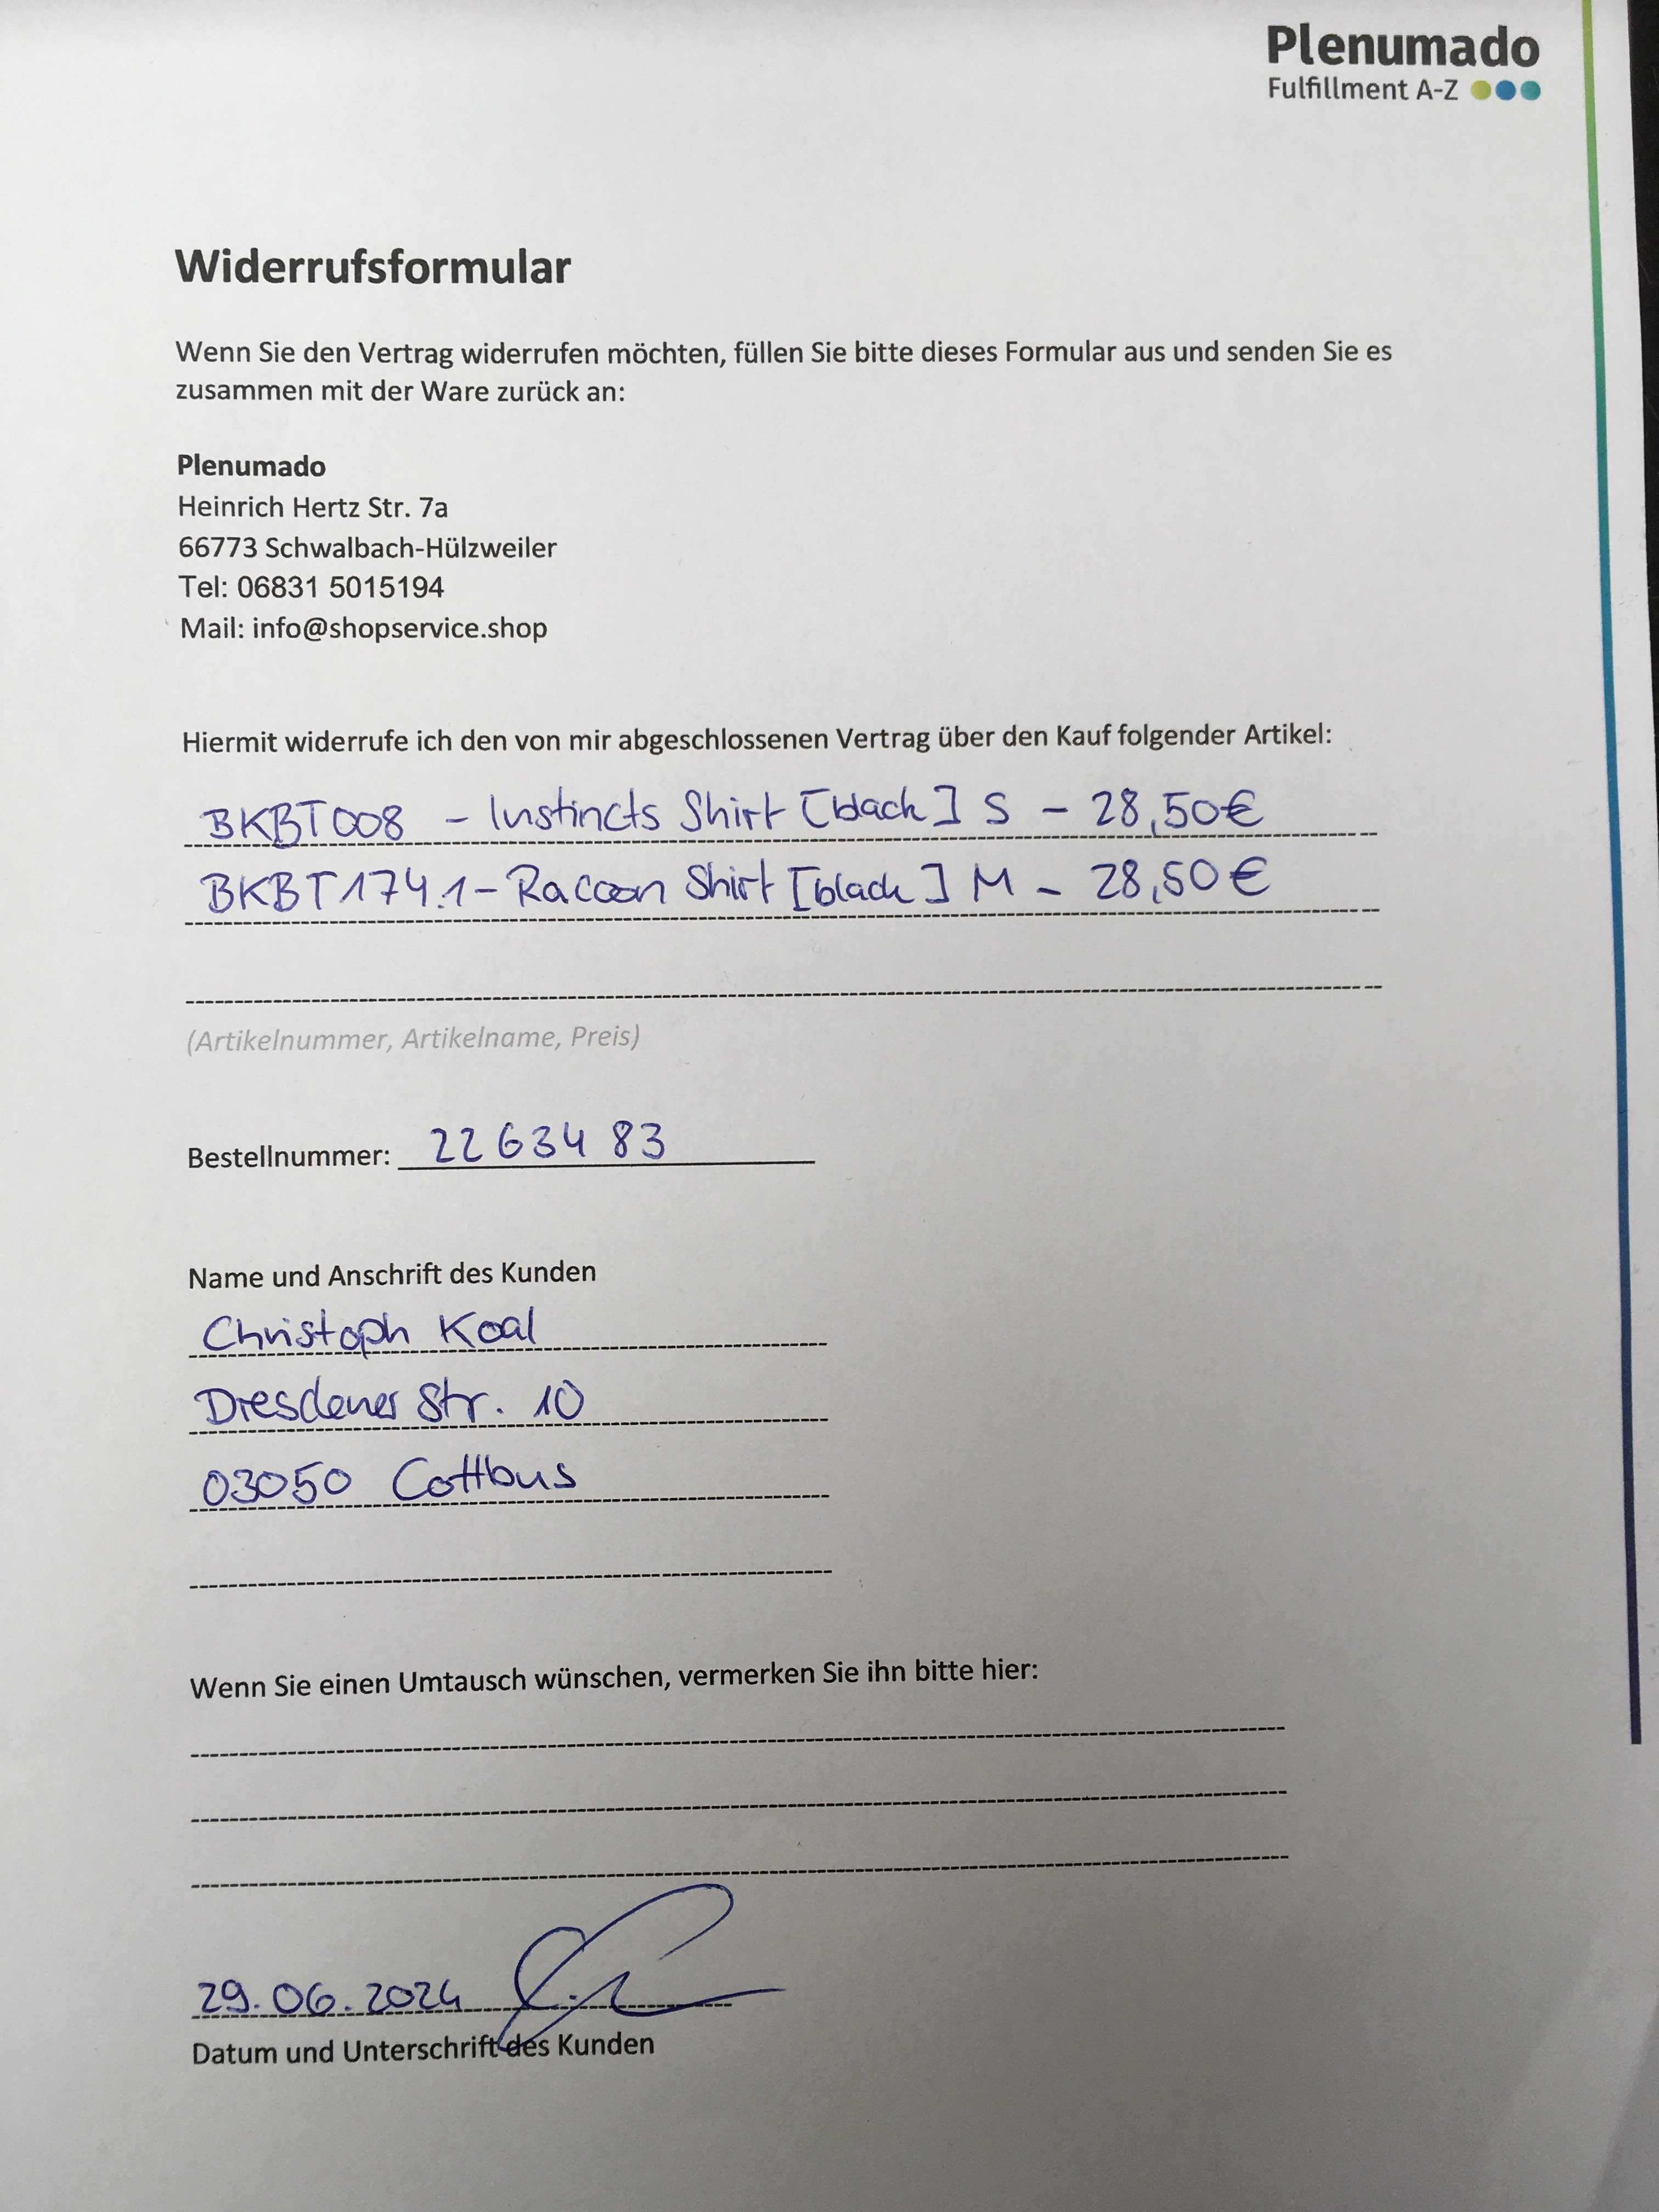 Plenumado
Fulfillment A-Z
Widerrufsformular
Wenn Sie den Vertrag widerrufen möchten, füllen Sie bitte dieses Formular aus und senden Sie es
zusammen mit der Ware zurück an:
Plenumado
Heinrich Hertz Str. 7a
66773 Schwalbach-Hülzweiler
Tel: 06831 5015194
Mail: info@shopservice.shop
Hiermit widerrufe ich den von mir abgeschlossenen Vertrag über den Kauf folgender Artikel:
BKBT008 - Instincts Shirt [black] S - 28,50€
BKBT174.1 - Racoon Shirt [black] M - 28,50€
(Artikelnummer, Artikelname, Preis)
Bestellnummer: 2263483
Name und Anschrift des Kunden
Christoph Koal
Dresdener Str. 10
03050 Cottbus
Wenn Sie einen Umtausch wünschen, vermerken Sie ihn bitte hier:
29.06.2024
Datum und Unterschrift des Kunden